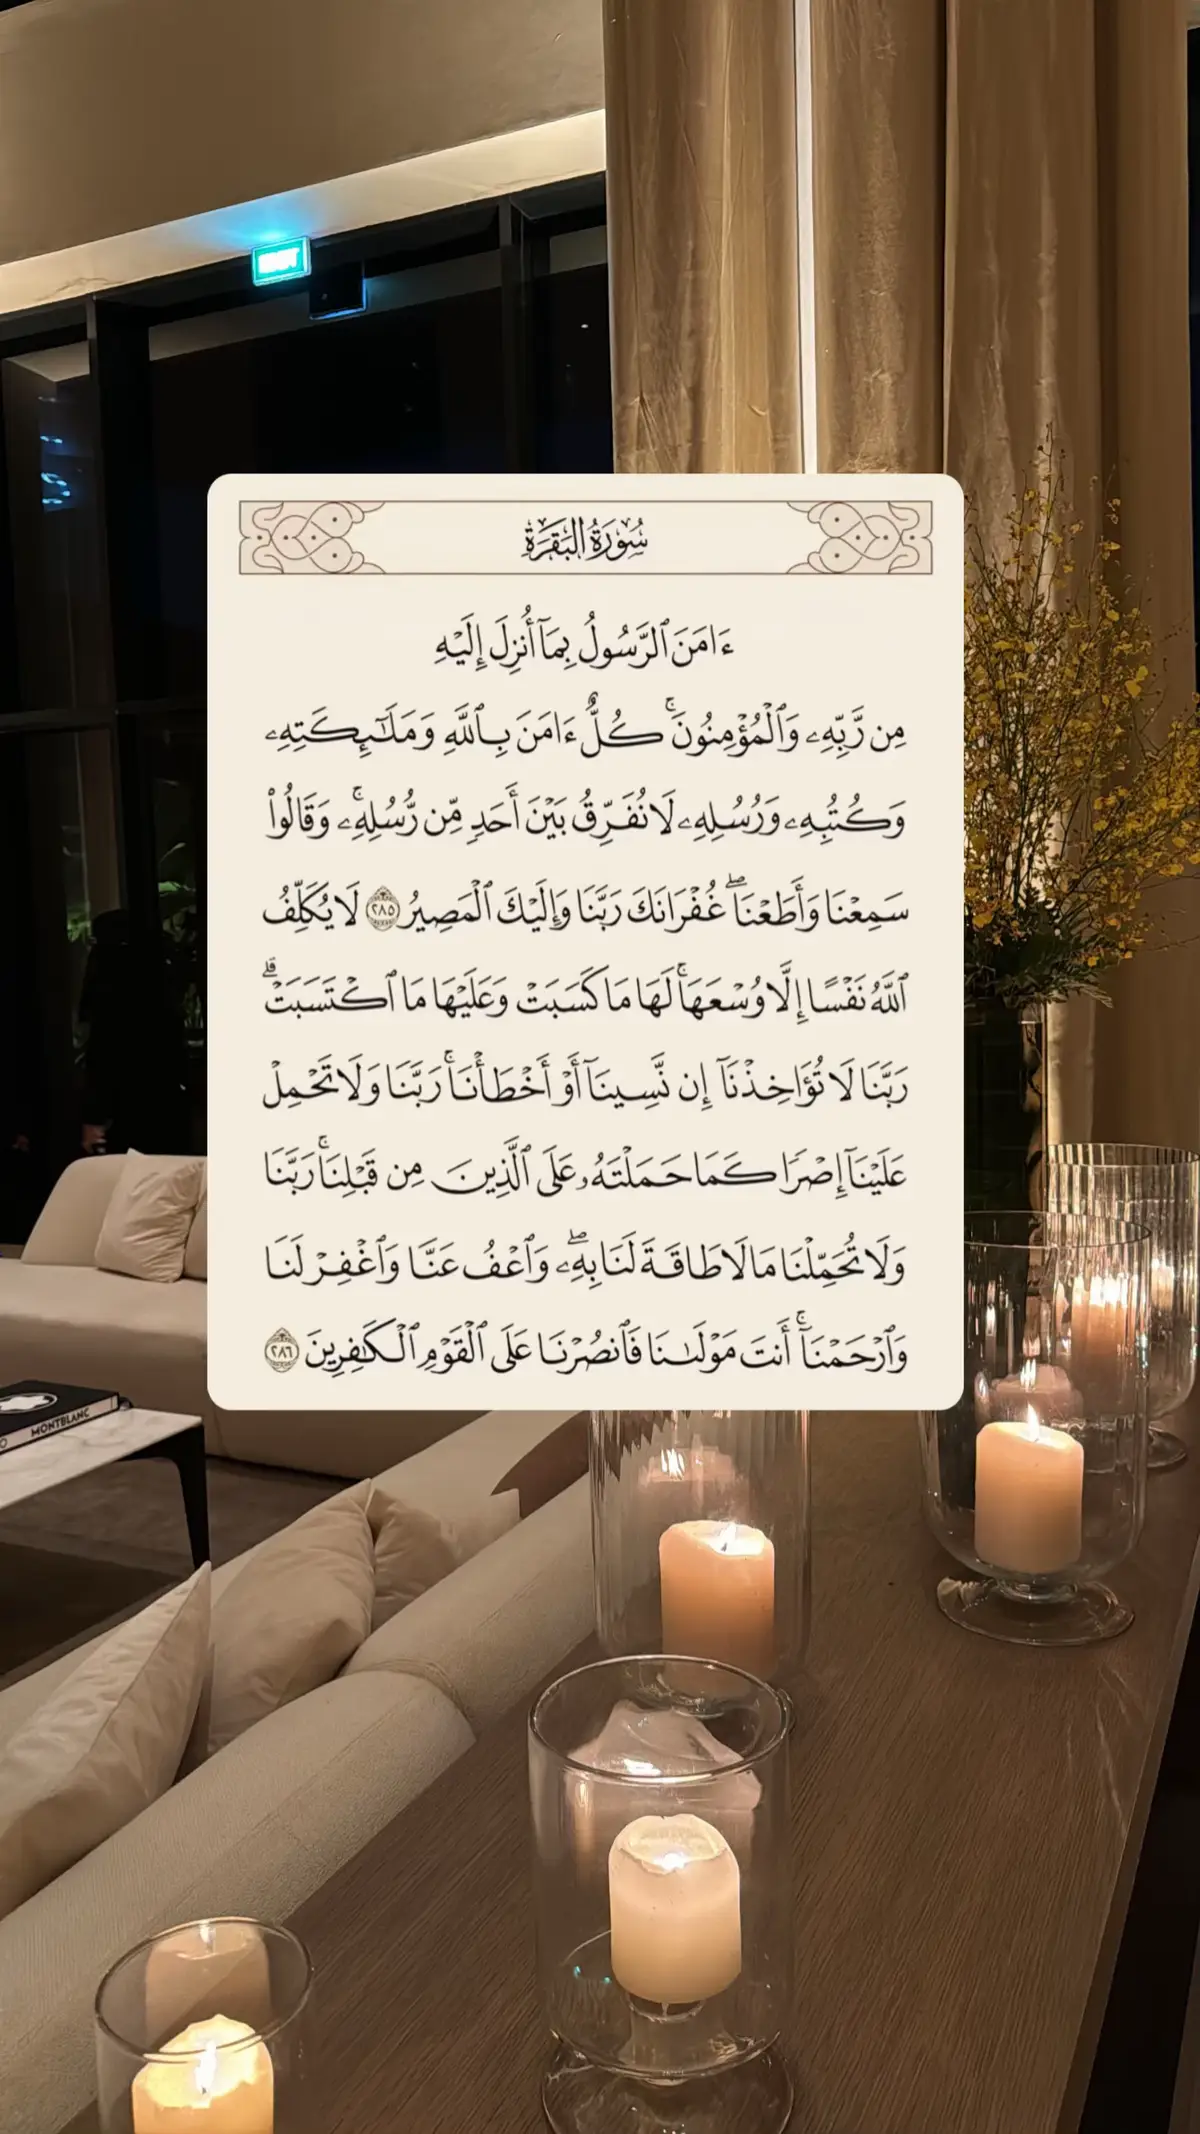 EXIT
سُورَةُ البَقَرَةِ
ءَامَنَ ٱلرَّسُولُ بِمَآ أُنزِلَ إِلَيْهِ
مِن رَّبِّهِۦ وَٱلْمُؤْمِنُونَ ۚ كُلٌّ ءَامَنَ بِٱللَّهِ وَمَلَـٰٓئِكَتِهِۦ
وَكُتُبِهِۦ وَرُسُلِهِۦ لَا نُفَرِّقُ بَيْنَ أَحَدٍ مِّن رُّسُلِهِۦ ۚ وَقَالُوا۟
سَمِعْنَا وَأَطَعْنَا ۖ غُفْرَانَكَ رَبَّنَا وَإِلَيْكَ ٱلْمَصِيرُ ٢٨٥ لَا يُكَلِّفُ
ٱللَّهُ نَفْسًا إِلَّا وُسْعَهَا ۚ لَهَا مَا كَسَبَتْ وَعَلَيْهَا مَا ٱكْتَسَبَتْ ۗ
رَبَّنَا لَا تُؤَاخِذْنَآ إِن نَّسِينَآ أَوْ أَخْطَأْنَا ۚ رَبَّنَا وَلَا تَحْمِلْ
عَلَيْنَآ إِصْرًا كَمَا حَمَلْتَهُۥ عَلَى ٱلَّذِينَ مِن قَبْلِنَا ۚ رَبَّنَا
وَلَا تُحَمِّلْنَا مَا لَا طَاقَةَ لَنَا بِهِۦ ۖ وَٱعْفُ عَنَّا وَٱغْفِرْ لَنَا
وَٱرْحَمْنَآ ۚ أَنتَ مَوْلَىٰنَا فَٱنصُرْنَا عَلَى ٱلْقَوْمِ ٱلْكَـٰفِرِينَ ٢٨٦
MONTBLANC